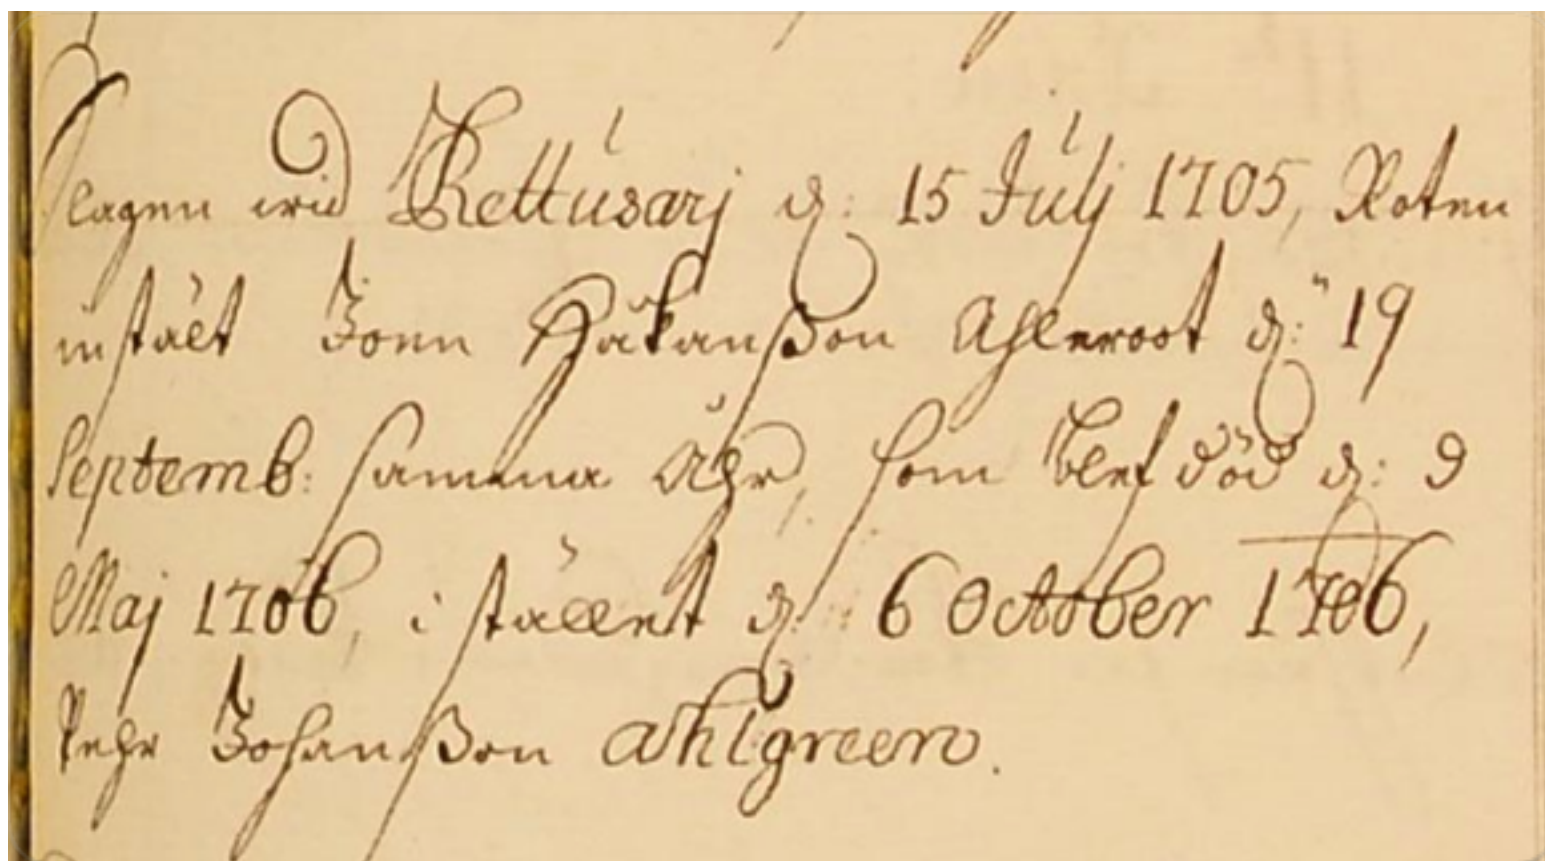 Slagen wid Rettusarj d: 15 Julj 1705, Roten
instält Joen Håkanßon Ahleroot d: 19
Septemb: samma Åhr, som blef död d: 9
Maj 1706, i stället d: 6 October 1706,
Pehr Johanßon Ahlgreen.